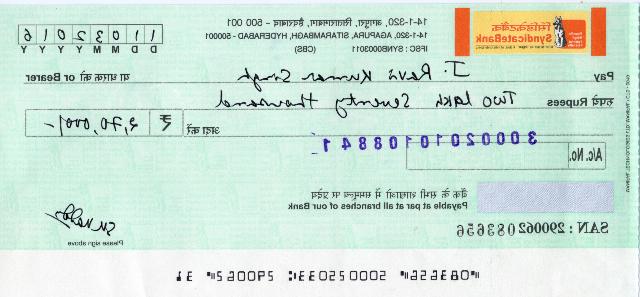 सिंडिकेटबैंक
SyndicateBank
14-1-320, आगापुरा, सितारामबाग, हैदराबाद - 500 001
14-1-320, AGAPURA, SITARAMBAGH, HYDERABAD - 500001
(CBS)
11032016
D D M M Y Y Y Y
Pay J. Ravi Kumar Singh या धारक को or Bearer
रुपये Rupees Two lakh Seventy thousand
अदा करें ₹ 2,70,000/-
A/c. No. 30002010108841
बैंक के सभी शाखाओं में सममूल्य पर प्रदेय
Payable at par at all branches of our Bank
SAN : 290062 083656
Please sign above
"083656" 500025033: 290062" 31